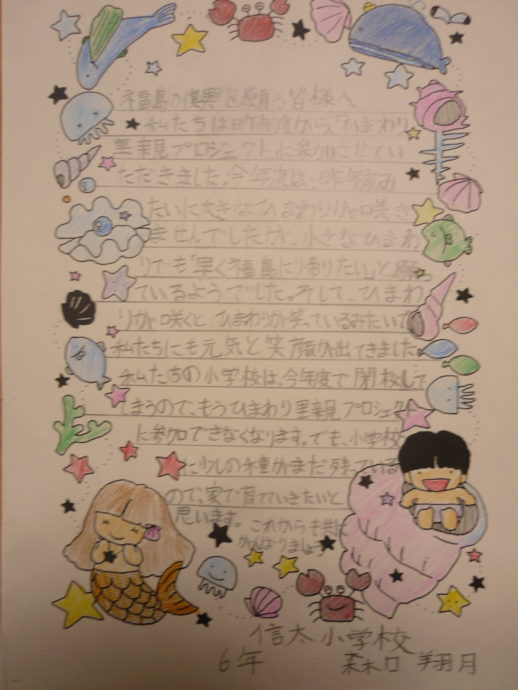 福島の復興を願う皆様へ
私たちは昨年度から、「ひまわり
里親プロジェクト」に参加させてい
ただきました。今年度は、昨年度み
たいに大きなひまわりが咲き
ませんでしたが、小さなひまわ
りでも「早く福島に帰りたい」と願っ
ているようでした。そして、ひまわ
りが咲くと、ひまわりが笑っているみたいで
私たちにも元気と笑顔が出てきました。
私たちの小学校は、今年度で閉校して
しまうので、もうひまわり里親プロジェクト
に参加できなくなります。でも、小学校
に少しの種がまだ残っている
ので、家で育てていきたいと
思います。これからも共に
がんばりましょう
信太小学校
6年 翔月